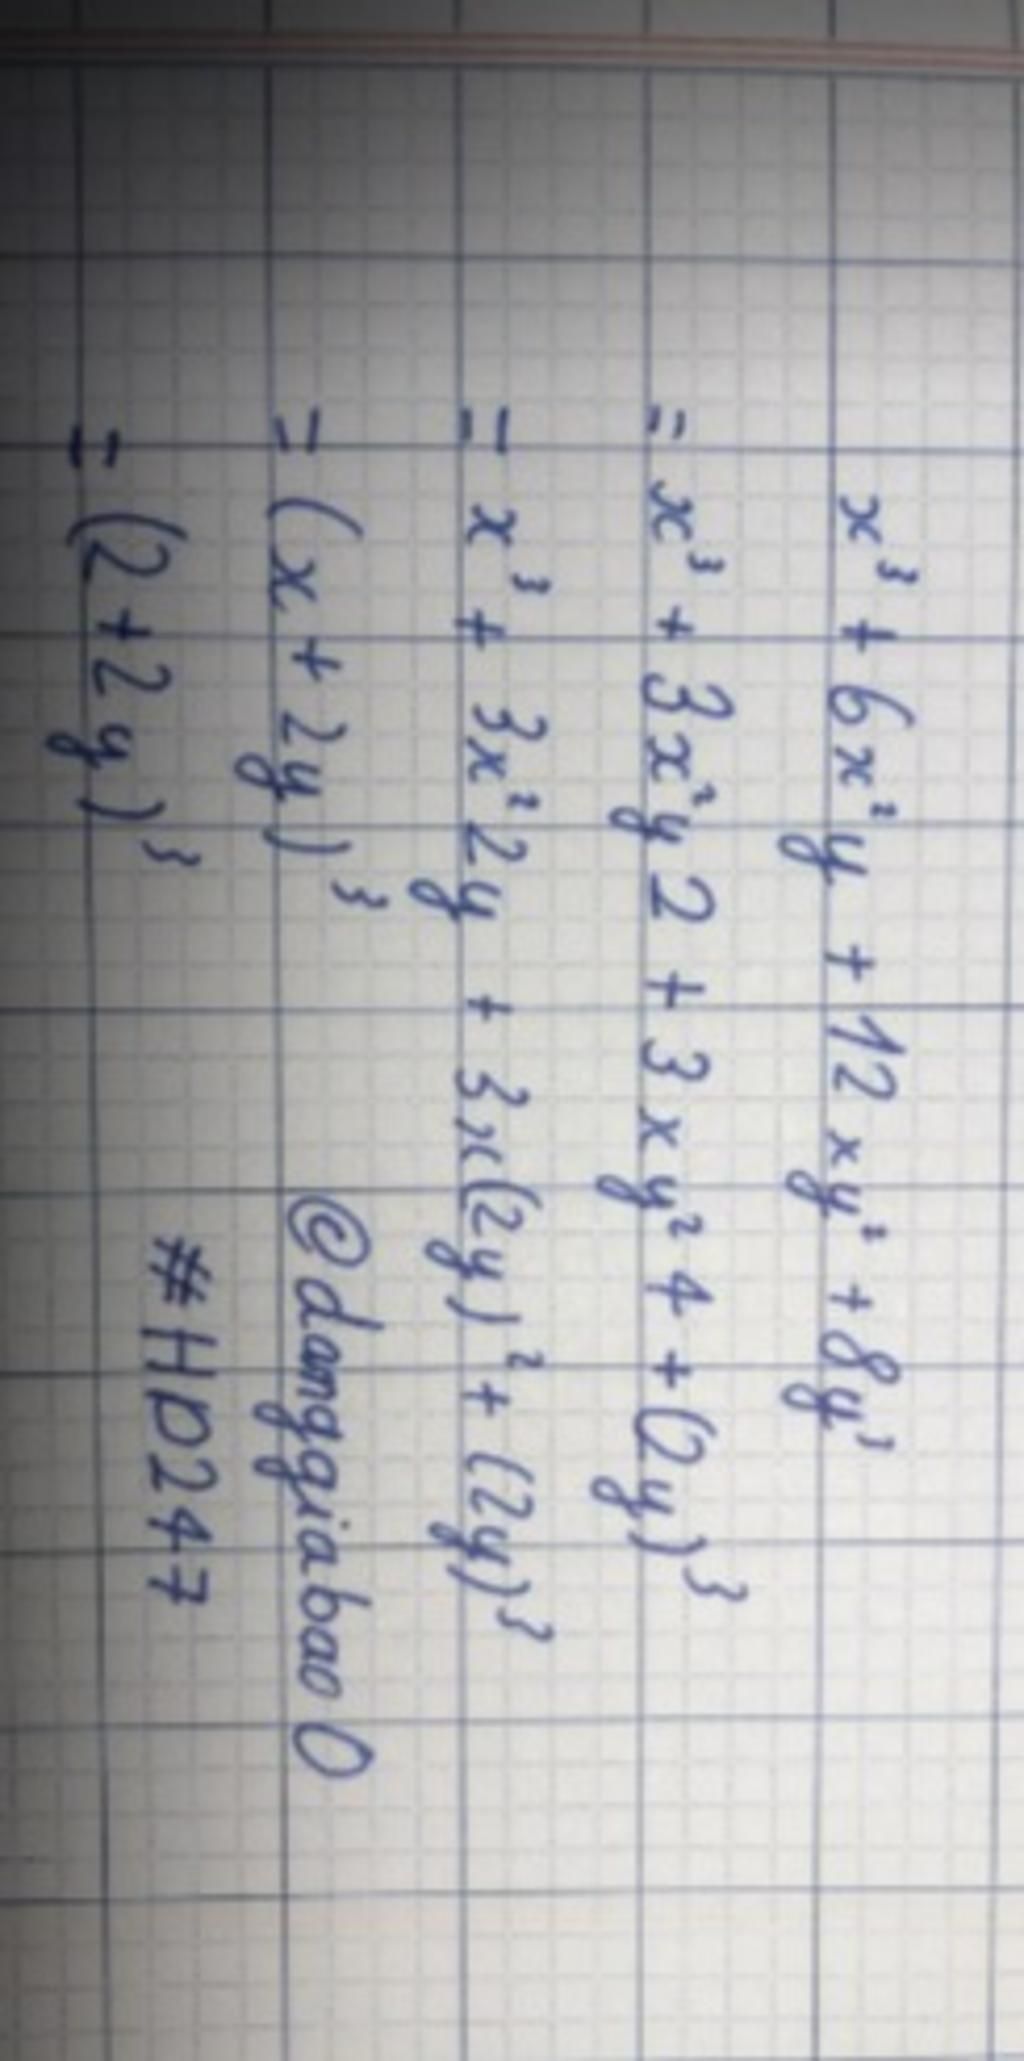 x³ + 6x²y + 12xy² + 8y³
= x³ + 3x²y2 + 3xy²4 + (2y)³
= x³ + 3x²2y + 3x(2y)² + (2y)³
= (x + 2y)³
@danggiabao0
= (2+2y)³
#HD247